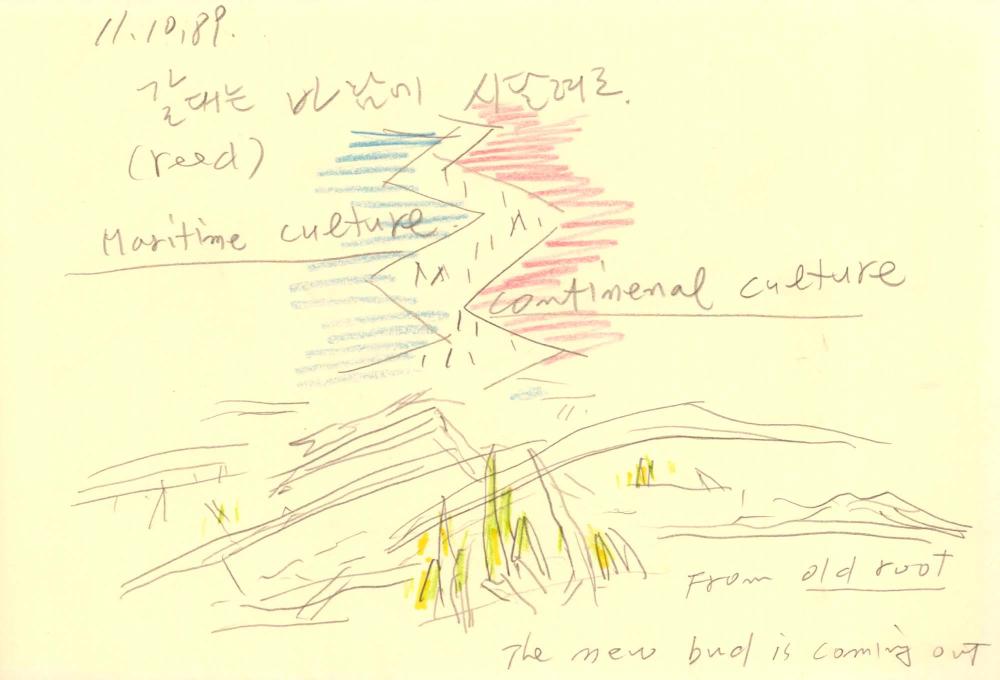 11.10.89.
갈대는 바람에 시달려로.
(reed)
Maritime culture.
continenal culture
From old root
The new bud is coming out